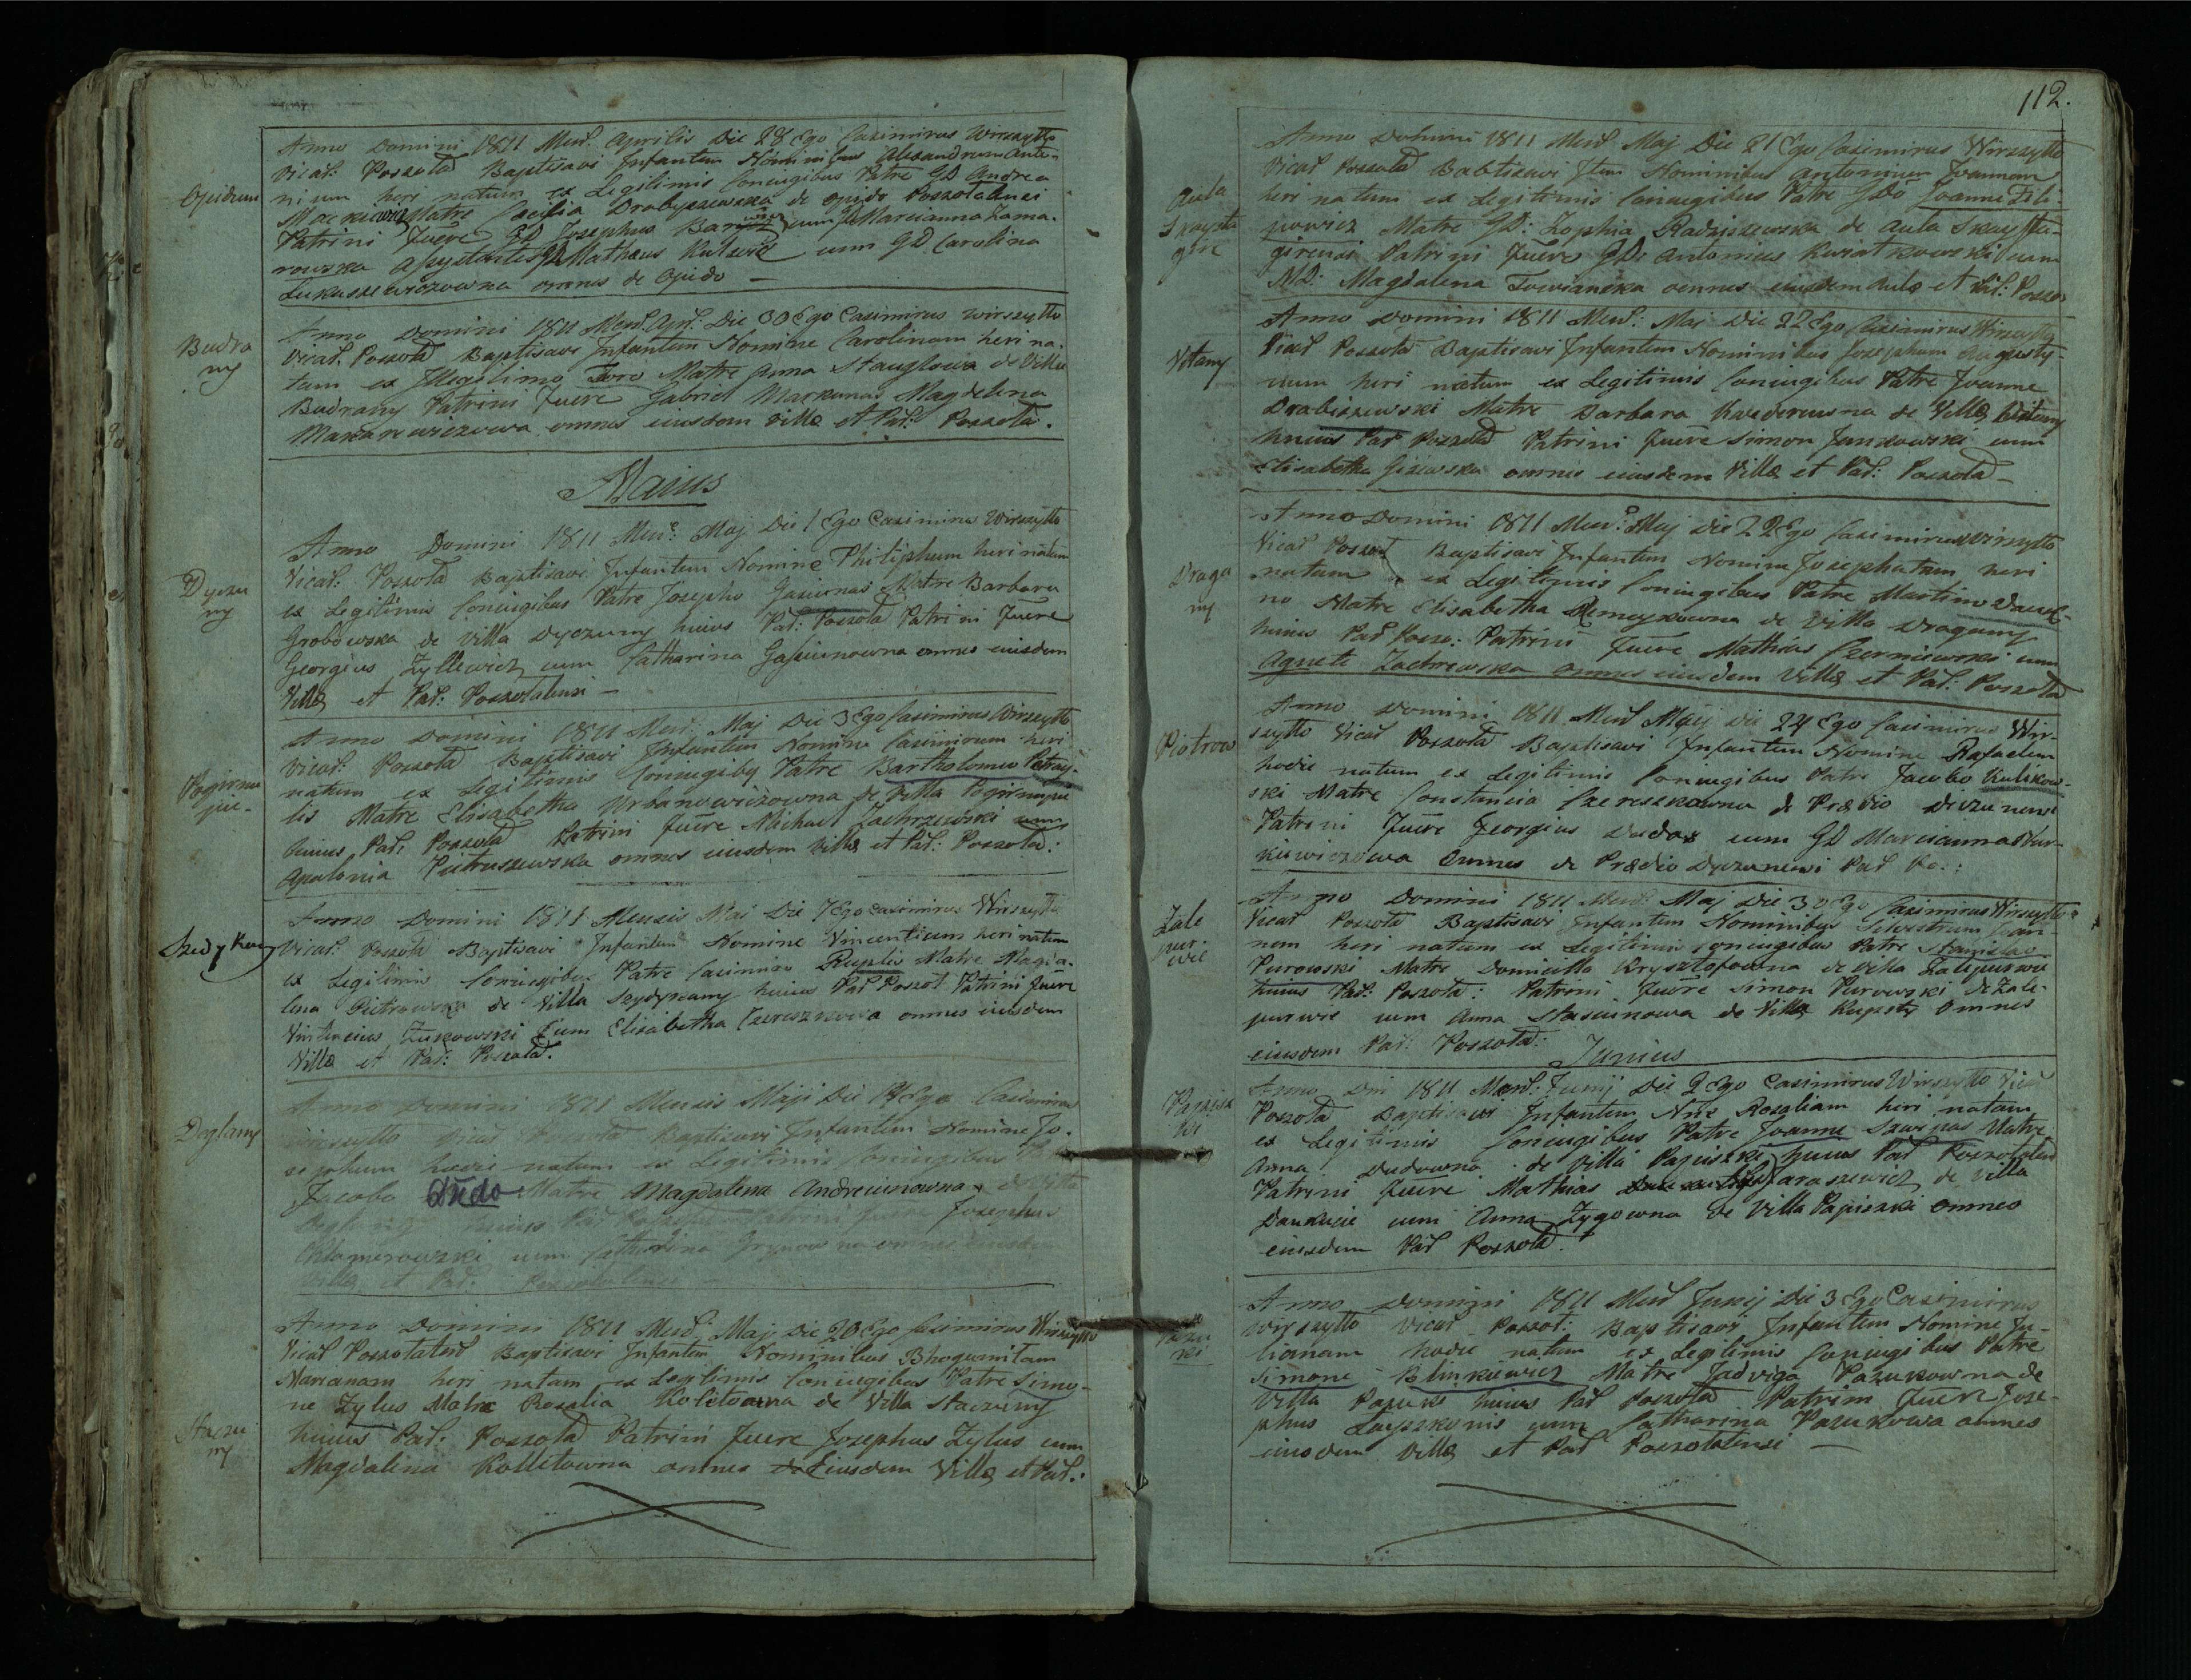 Opidum
Anno Domini 1811 Mens. Aprilis Die 28 Ego Casimirus Wirszyłło
Vicar: Poszołat Baptisavi Infantem Nominibus Alexandrum Anto-
nium heri natum ex Legitimis Coniugibus Patre GD Andrea
Mackiewicz Matre Cecilia Drobyszewska de opido Poszolatensi
Patrini Fuere GD Josephus cum Marcianna Kama-
rowska Assystentes GD Mathaeus cum GD Carolina
Łukaszewiczowna omnes de Opido —
Budra
ny
Anno Domini 1811 Mens. Apr: Die 30 Ego Casimirus Wirszyłło
Vicar. Poszołat Baptisavi Infantem Nomine Carolinam heri na-
tam ex Illegitimo Toro Matre Anna Stauglowa de Villa
Budrany Patrini Fuere Gabriel Markunas Magdelena
Markiewiczowa omnes eiusdem Villae et Par: Poszołat.
Maius
Dyrzu
ny
Anno Domini 1811 Mens: Maj Die 1 Ego Casimirus Wirszyłło
Vicar: Poszołat Baptisavi Infantem Nomine Philiphum heri natum
ex Legitimis Coniugibus Patre Josepho Gasiunas Matre Barbara
Grobowska de Villa Dyrzuny huius Par: Poszołat Patrini Fuere
Georgius Zyllewicz cum Catharina Gasiunowna omnes eiusdem
Villae et Par: Poszolatensi —
Pogirnu
pie-
Anno Domini 1811 Mens: Maj Die 3 Ego Casimirus Wirszyłło
Vicar: Poszołat Baptisavi Infantem Nomine Casimirum heri
natum ex Legitimis Coniugibus Patre Bartholomeo Petray-
lis Matre Elisabetha Urbanowiczowna de Villa Pogirnupie
huius Par: Poszołat Patrini Fuere Michael Zachrzewski cum
Apolonia Pietruszewska omnes eiusdem Villae et Par: Poszołat:
Szedykany
Anno Domini 1811 Mensis Mai Die 7 Ego Casimirus Wirszyłło
Vicar: Poszołat Baptisavi Infantem Nomine Vincentium heri natum
ex Legitimis Coniugibus Patre Casimiro Rupslis Matre Magda-
lena Pietrowska de Villa Szydykany huius Par Poszoł Patrini Fuere
Vincencius Zukowski Cum Elisabetha Czereszkowa omnes eiusdem
Villae et Par: Poszołat.
Deglany
Anno Domini 1811 Mensis Maji Die 14 Ego Casimirus
Wirszyłło Vicar Poszołat Baptisavi Infantem Nomine Jo-
sephum hodie natum ex Legitimis Coniugibus
Jacobo Dudo Matre Magdalena Andreiunowna de Villa
huius Par Patrini Fuere Josephus
cum Catharina Grynowna omnes
Villae et Par: Poszolatensi
Staczu
ny
Anno Domini 1811 Mens: Maj Die 20 Ego Casimirus Wirszyłło
Vicar Poszolatens Baptisavi Infantem Nominibus Bhogumitam
Mariannam heri natam ex Legitimis Coniugibus Patre Simo-
ne Zylus Matre Rosalia Kolitowna de Villa Staczuny
huius Par: Poszołat Patrini Fuere Josephus Zylus cum
Magdalina Kollitowna omnes eiusdem Villae et Par.:
112.
Aula
Skaysta
gire
Anno Domini 1811 Mens Maj Die 21 Ego Casimirus Wirszyłło
Vicar Poszołat Babtisavi Ftem Nominibus Antonium Joannem
heri natum ex Legitimis Coniugibus Patre GDo Joanne Fili-
powicz Matre GD: Zophia Radziszewska de Aula Skaysta-
girensi Patrini Fuere GD: Antonius Kwiatkowski cum
MD: Magdalena Towianska omnes eiusdem Aulae et Par: Poszo
Votany
Anno Domini 1811 Mens: Maj Die 22 Ego Casimirus Wirszyłło
Vicar Poszołat Baptisavi Infantem Nominibus Josephum Augusty-
num heri natum ex Legitimis Coniugibus Patre Joanne
Drabiszewski Matre Barbara de Villa
huius Par Poszołat Patrini Fuere Simon Junkowski cum
Elisabetha Gizewska omnes eiusdem Villae et Par: Poszołat —
Draga
ny
Anno Domini 1811 Mens: Maj Die 22 Ego Casimirus Wirszyłło
Vicar Poszoł Baptisavi Infantem Nomine Josephatum heri
natum ex Legitimis Coniugibus Patre Martino
no Matre Elisabetha de Villa Dragany
huius Par Poszo: Patrini Fuere Mathias Czerniewski cum
Agneta Zachrewska omnes eiusdem Villae et Par: Poszołat
Piotrow
Anno Domini 1811 Mens Maij Die 24 Ego Casimirus Wir-
szyłło Vicar Poszołat Baptisavi Infantem Nomine Rafaelem
hodie natum ex Legitimis Coniugibus Patre Jacobo Kulikow-
ski Matre Constancia Czereszkowna de Praedio
Patrini Fuere Georgius Dudas cum GD Marcianna
kiewiczowa Omnes de Praedio Dyrzunensi Par Po.:
Zale
pur-
wie
Anno Domini 1811 Mens: Maj Die 30 Ego Casimirus Wirszyłło
Vicar Poszołat Baptisavi Infantem Nominibus Silvestrum Joan-
nem heri natum ex Legitimis Coniugibus Patre Stanislao
Purowski Matre Domicilla Krysztofowna de Villa Zalepurwie
huius Par: Poszołat: Patrini Fuere Simon Purowski de Zale-
purwie cum Anna Stasiunowa de Villa Kupsty Omnes
eiusdem Par: Poszołat:
Junius
Papisz
ki
Anno Dni 1811 Mens: Junij Die 2 Ego Casimirus Wirszyłło Vicar
Poszołat Baptisavi Infantem Nne Rosaliam heri natam
ex Legitimis Coniugibus Patre Joanne Szwipas Matre
Anna Dudowna de Villa Papiszki huius Par Poszolatens
Patrini Fuere Mathias Jaraszewicz de Villa
Daukucie cum Anna Zygowna de Villa Papiszki omnes
eiusdem Par Poszołat.
Pazu
ki
Anno Domini 1811 Mens Junij Die 3 Ego Casimirus
Wirszyłło Vicar Poszoł: Baptisavi Infantem Nomine Ju-
lianam hodie natam ex Legitimis Coniugibus Patre
Simone Klinkiewicz Matre Jadviga Pazukowna de
Villa Pazuki huius Par Poszołat Patrini Fuere Jose-
phus Layszkonis cum Catharina Pazukowa omnes
eiusdem Villae et Par Poszolatensi —